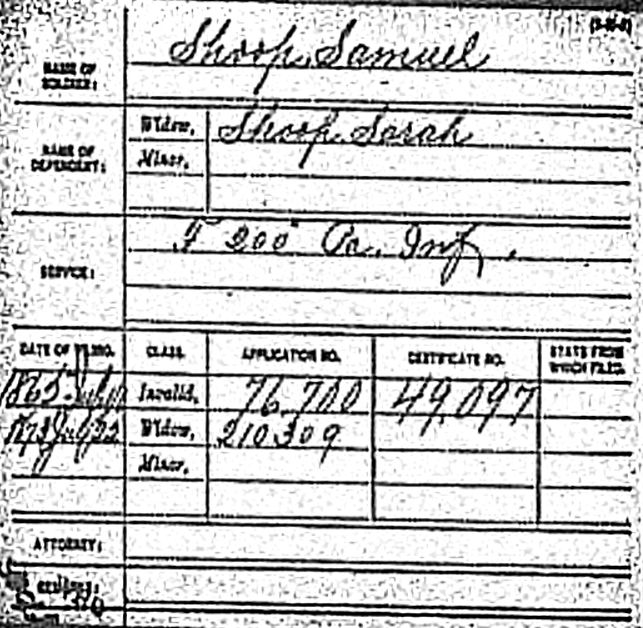 Shoop, Samuel
NAME OF SOLDIER:
NAME OF DEPENDENT:
Widow, Shoop Sarah
Minor,
SERVICE:
F 200" Pa. Inf,
DATE OF FILING. CLASS. APPLICATION NO. CERTIFICATE NO. STATE FROM WHICH FILED.
1865 July Invalid, 76,700 49,097
Widow, 210,309
Minor,
ATTORNEY: